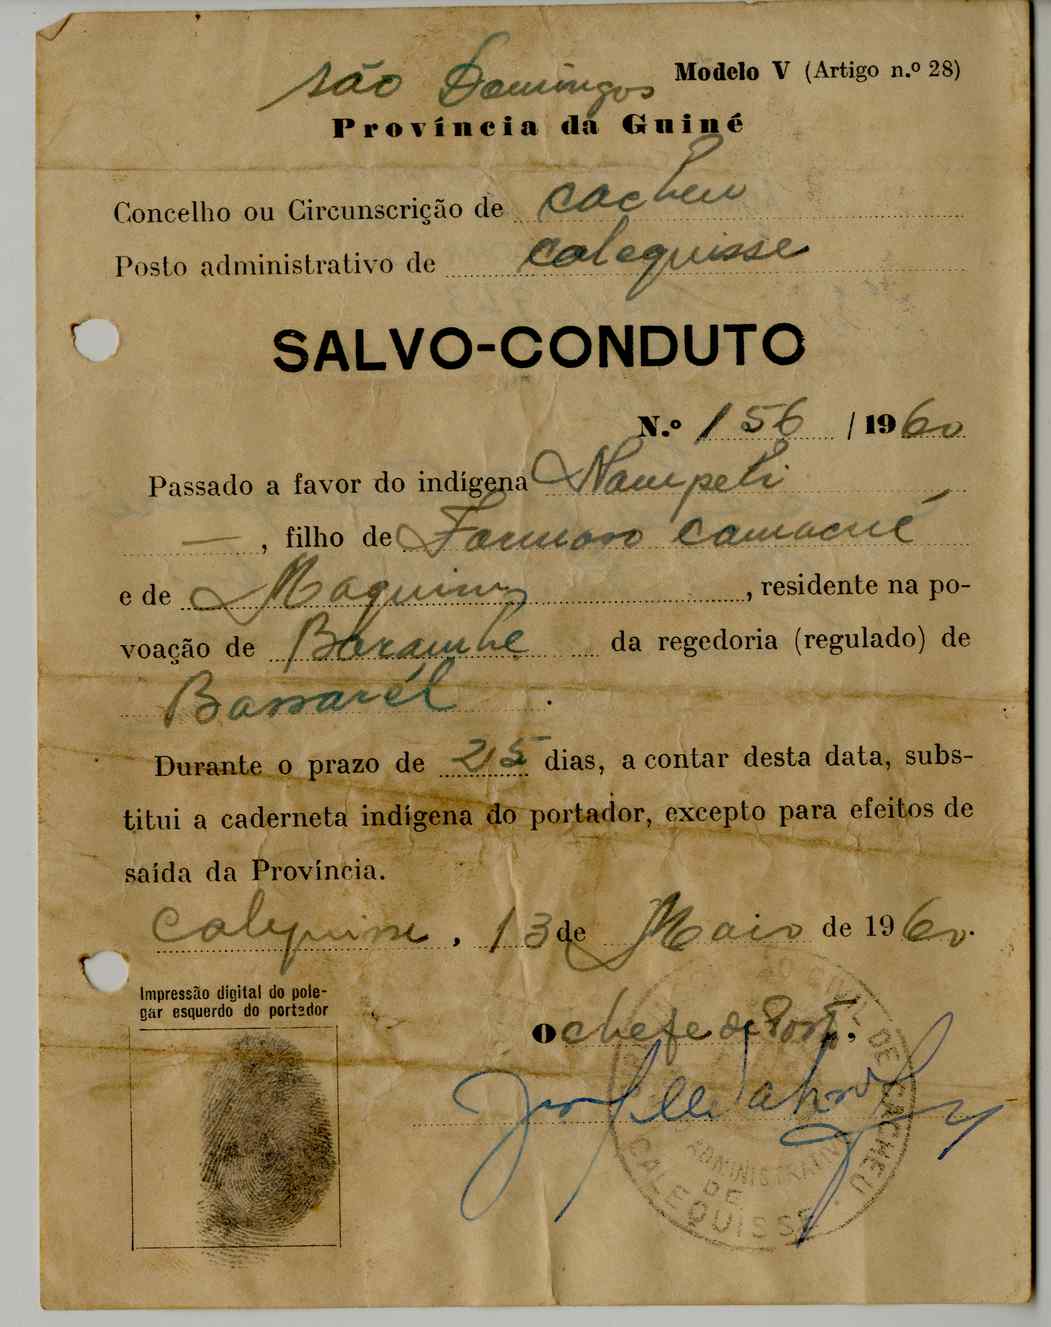 São Domingos
Modelo V (Artigo n.º 28)
Província da Guiné
Concelho ou Circunscrição de Cacheu
Posto administrativo de Calequisse
SALVO-CONDUTO
N.º 156 / 1960
Passado a favor do indígena Nampeli
—, filho de Formoso Camacué
e de Maquim, residente na po-
voação de Barambe da regedoria (regulado) de
Bassarél.
Durante o prazo de 25 dias, a contar desta data, subs-
titui a caderneta indígena do portador, excepto para efeitos de
saída da Província.
Calequisse, 13 de Maio de 1960.
Impressão digital do pole-
gar esquerdo do portador
O chefe de Posto,
DE CACHEU
ADMINISTRATIVO
DE
CALEQUISSE